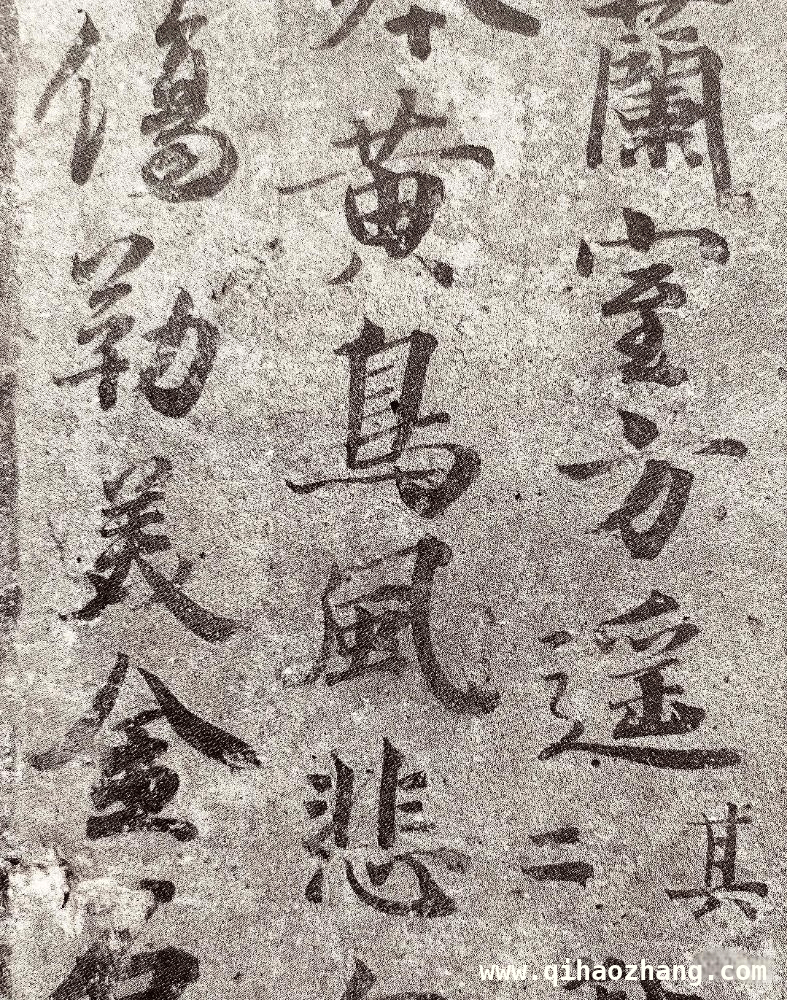 蘭室方遥其二
黄鳥風悲
傷勒美金
www.qihaozhang.com